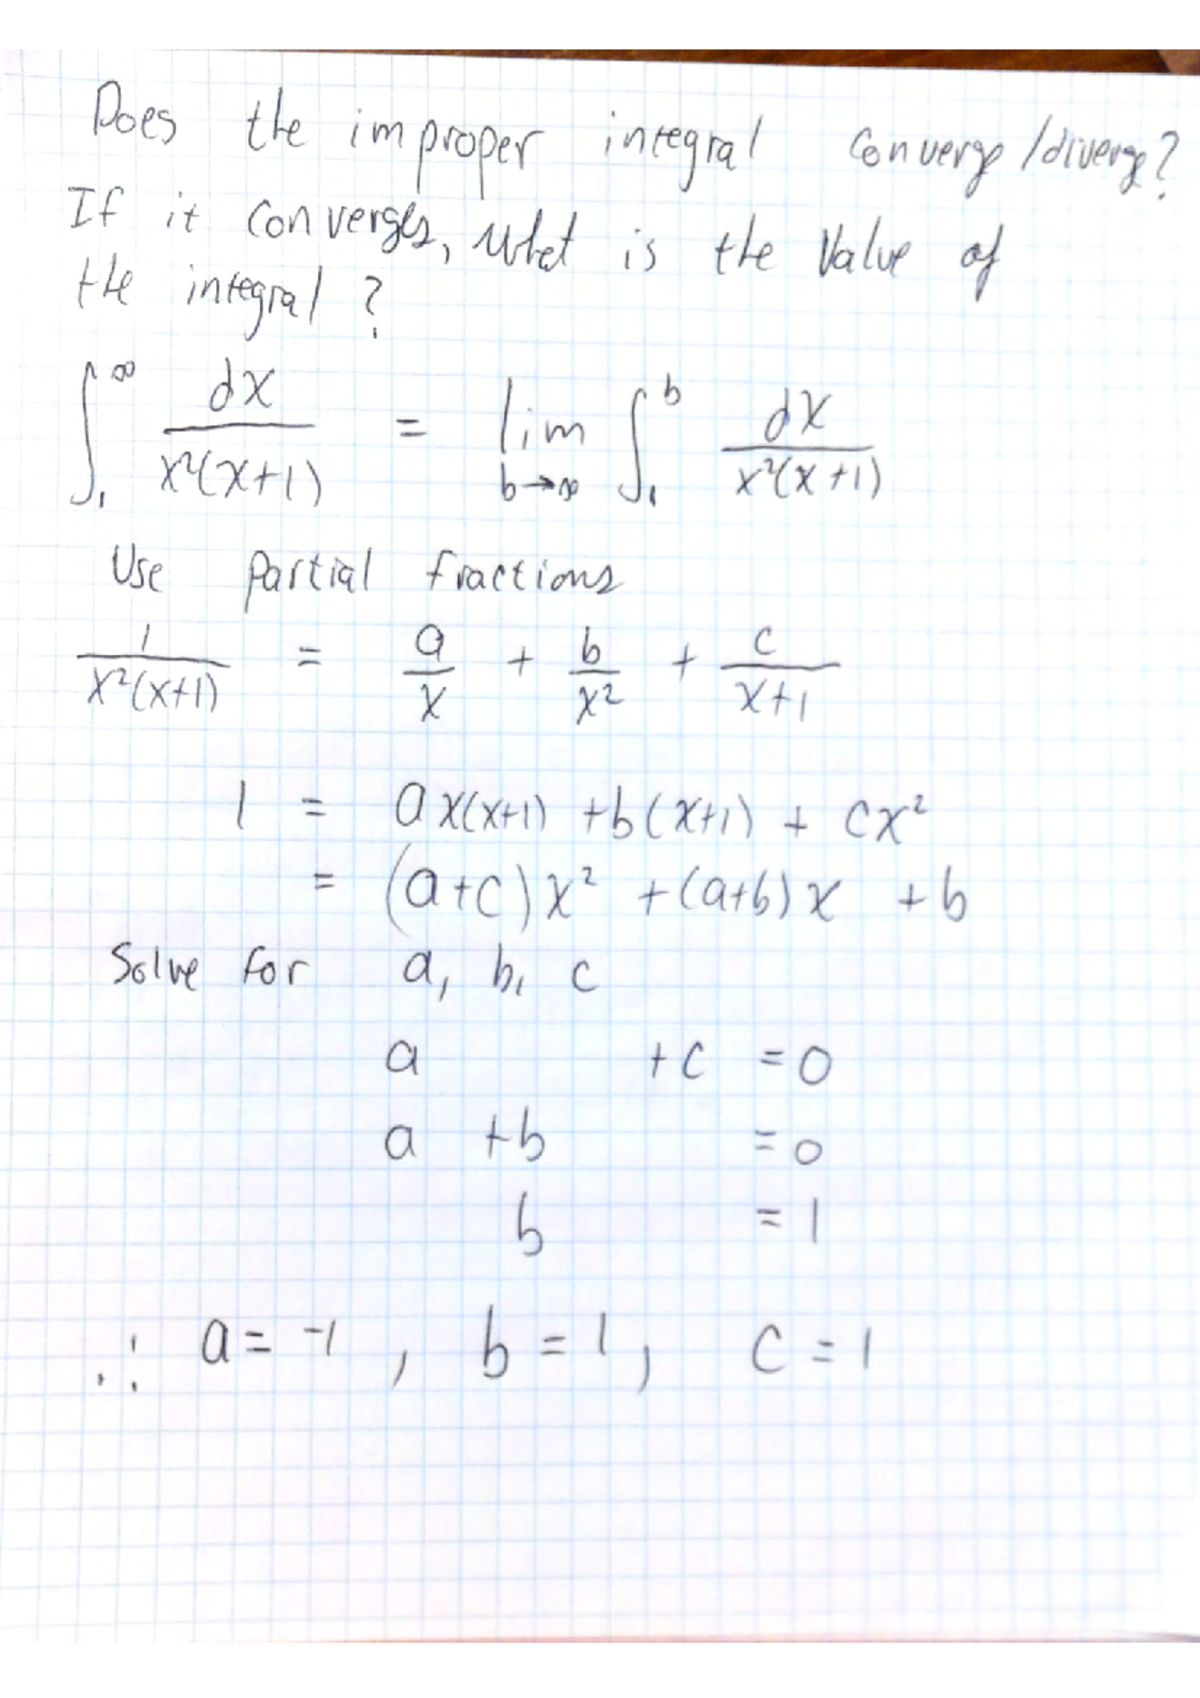 Does the improper integral converge/diverge?
If it converges, what is the value of
the integral?
∫₁^∞ dx / x²(x+1) = lim b→∞ ∫₁^b dx / x²(x+1)
Use partial fractions
1 / x²(x+1) = a/x + b/x² + c/x+1
1 = ax(x+1) + b(x+1) + cx²
= (a+c)x² + (a+b)x + b
Solve for a, b, c
a + c = 0
a + b = 0
b = 1
∴ a = -1, b = 1, c = 1